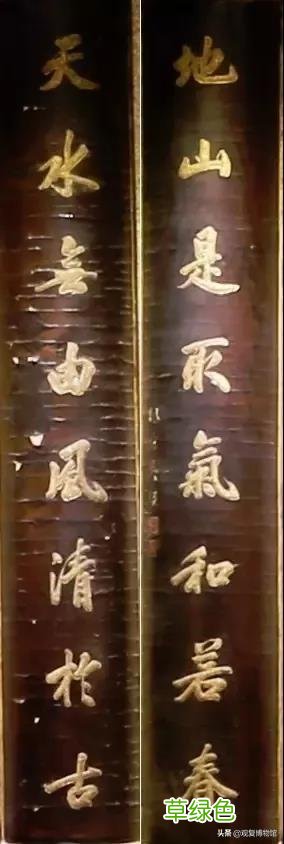 地山是取氣和若春
天水無由風清扵古
草绿色
头条 @观复博物馆